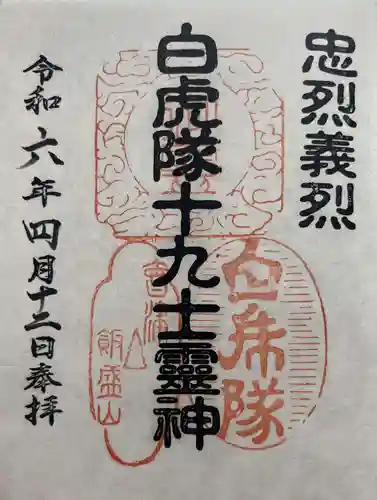 忠烈義烈
白虎隊十九士靈神
白虎隊
會津
飯盛山
令和六年四月十二日奉拝